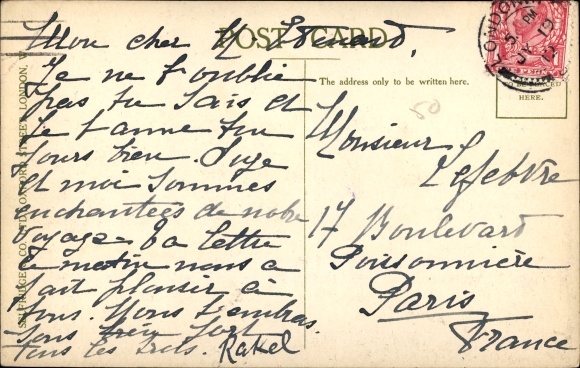 POST CARD
Mon cher M
Je ne t'oublie
pas tu sais et
Je t'aime tou
jours bien. Suze
et moi sommes
enchantées de notre
voyage. Ta lettre
ce matin nous a
fait plaisir à
tous. Nous t'embras
sons bien fort
tous les trois. Rakel
The address only to be written here.
HERE.
50
Monsieur
Lefebvre
17 Boulevard
Poissonnière
Paris
France
LONDON
5. PM
JY 15
12
SELFRIDGE & CO. LTD. OXFORD STREET, LONDON, W.